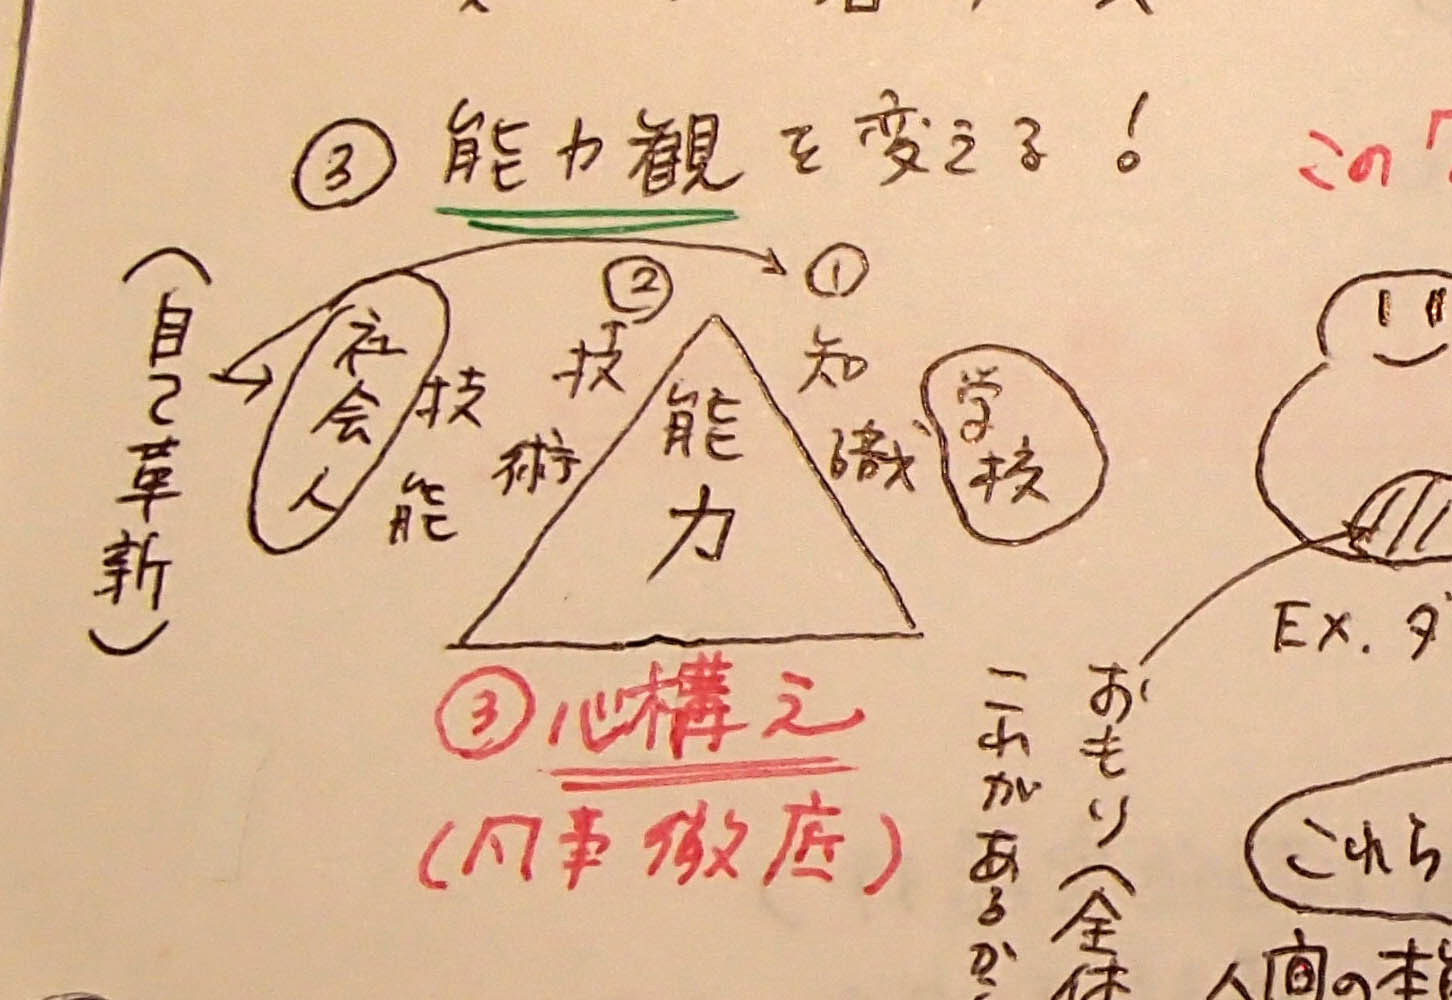 ③ 能力観を変える！
この
（自己革新）
社会人
技能
② 技術
① 知識
学校
能力
③ 心構え
（凡事徹底）
Ex. ダ
おもり（全体
これがあるから
これら
人間の本